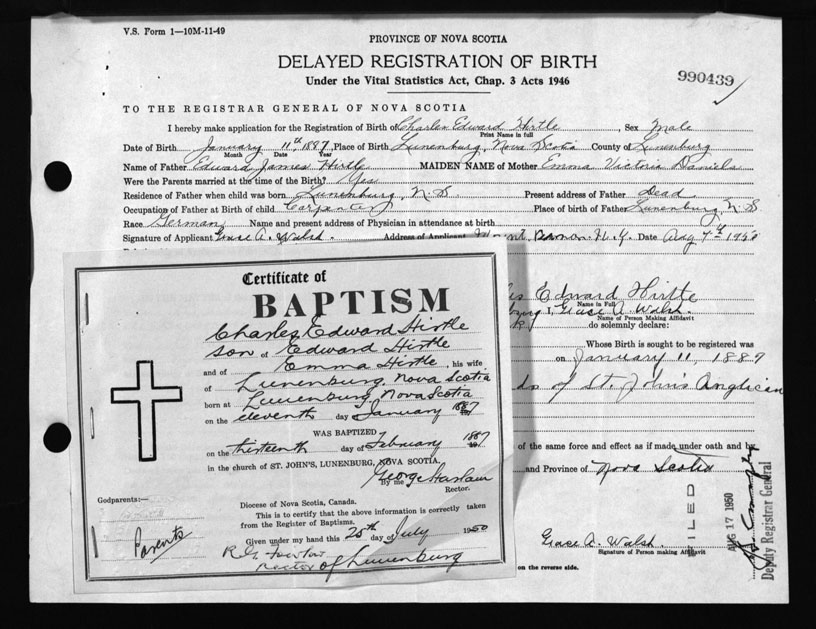 V.S. Form 1—10M-11-49
PROVINCE OF NOVA SCOTIA
DELAYED REGISTRATION OF BIRTH
Under the Vital Statistics Act, Chap. 3 Acts 1946
990439
TO THE REGISTRAR GENERAL OF NOVA SCOTIA
I hereby make application for the Registration of Birth of Charles Edward Hirtle, Sex Male
Print Name in full
Date of Birth January 11th, 1887, Place of Birth Lunenburg, Nova Scotia County of Lunenburg
Month Date Year
Name of Father Edward James Hirtle MAIDEN NAME of Mother Emma Victoria Daniels
Were the Parents married at the time of the Birth? Yes
Residence of Father when child was born Lunenburg, N.S. Present address of Father Dead
Occupation of Father at Birth of child Carpenter Place of birth of Father Lunenburg, N.S
Race German Name and present address of Physician in attendance at birth
Signature of Applicant Grace A. Walsh. Address of Applicant Mount Vernon N.Y. Date Aug 7th 1950
Certificate of
BAPTISM
Charles Edward Hirtle
son of Edward Hirtle
and of Emma Hirtle, his wife
of Lunenburg, Nova Scotia
born at Lunenburg, Nova Scotia
on the eleventh day January 1887
WAS BAPTIZED
on the thirteenth day of February 1887
in the church of ST. JOHN'S, LUNENBURG, NOVA SCOTIA.
By me George Haslam
Rector.
Godparents:—
Parents
Diocese of Nova Scotia, Canada.
This is to certify that the above information is correctly taken
from the Register of Baptisms.
Given under my hand this 25th day of July 1950
Rector of Lunenburg
les Edward Hirtle
Name in Full
I, Grace A. Walsh.
Name of Person Making Affidavit
do solemnly declare:
Whose Birth is sought to be registered was
on January 11, 1887
ds of St. John's Anglican
of the same force and effect as if made under oath and by
and Province of Nova Scotia
FILED
AUG 17 1950
Deputy Registrar General
Grace A. Walsh.
Signature of Person making Affidavit
on the reverse side.